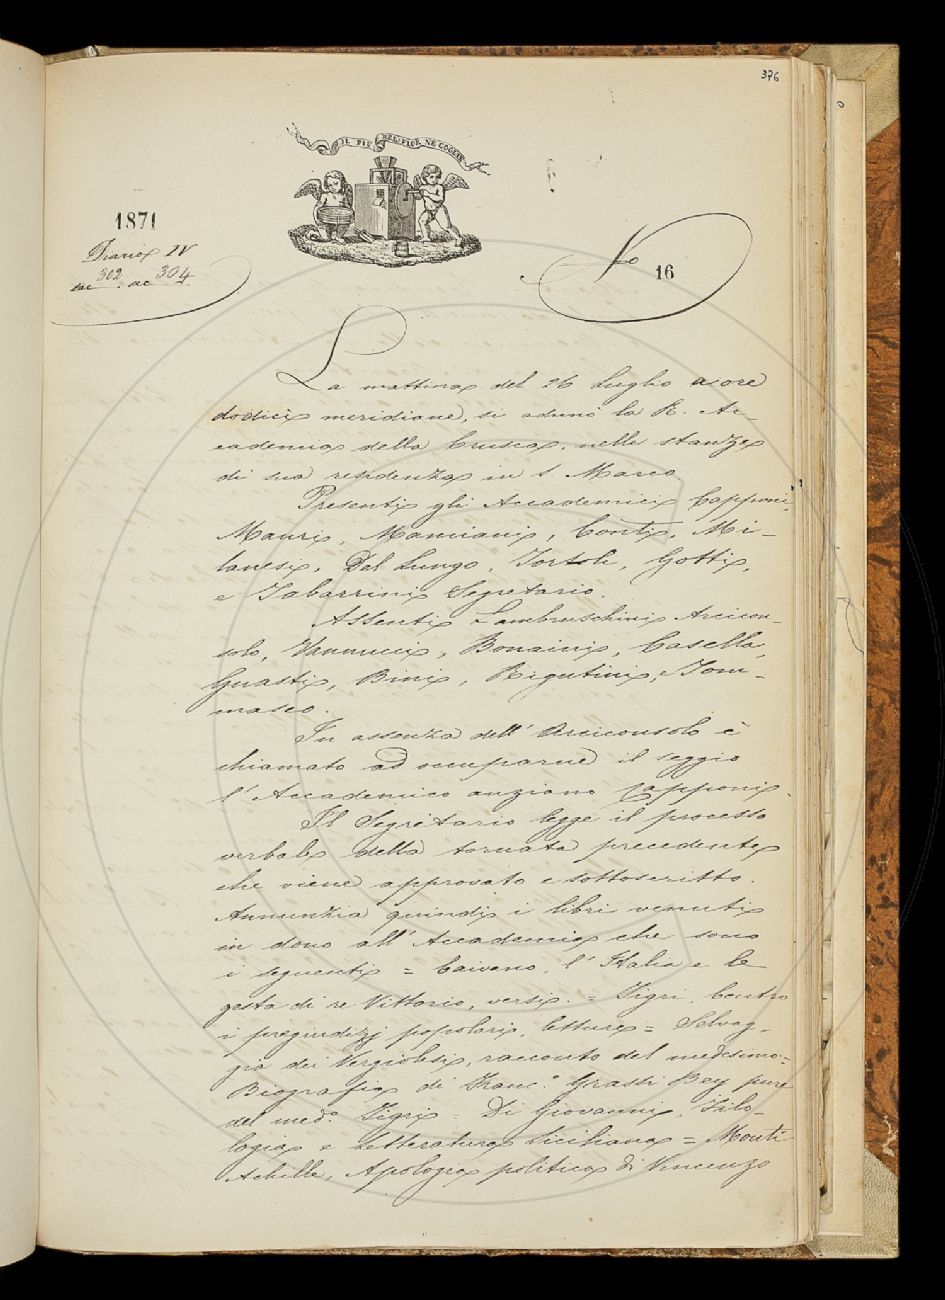 376
IL PIÙ BEL FIOR NE COGLIE
1871
Diario IV
sac 302. ac 304.
No 16
La mattina del 26 Luglio a ore
dodici meridiane, si adunò la R. Ac-
cademia della Crusca, nelle stanze
di sua residenza in S. Marco
Presenti gli Accademici Capponi,
Mauri, Mamiani, Conti, Mi-
lanesi, Del Lungo, Tortoli, Gotti,
e Tabarrini Segretario.
Assenti Lambruschini Arcicon-
solo, Vannucci, Bonaini, Casella,
Guasti, Bini, Rigutini, Tom-
maseo.
In assenza dell' Arciconsolo è
chiamato ad occuparne il seggio
l'Accademico anziano Capponi.
Il Segretario legge il processo
verbale della tornata precedente
che viene approvato e sottoscritto.
Annunzia quindi i libri venuti
in dono all' Accademia che sono
i seguenti = Caivano, l'Italia e le
gesta di re Vittorio, versi. = Tigri, Contro
i pregiudizj popolari, letture = Selvag-
gia dei Vergiolesi, racconto del medesimo =
Biografia di Franc.o Grassi Bey pure
del med.o Tigri = Di Giovanni, Filo-
logia e Letteratura Siciliana = Monti
Achille, Apologia politica di Vincenzo